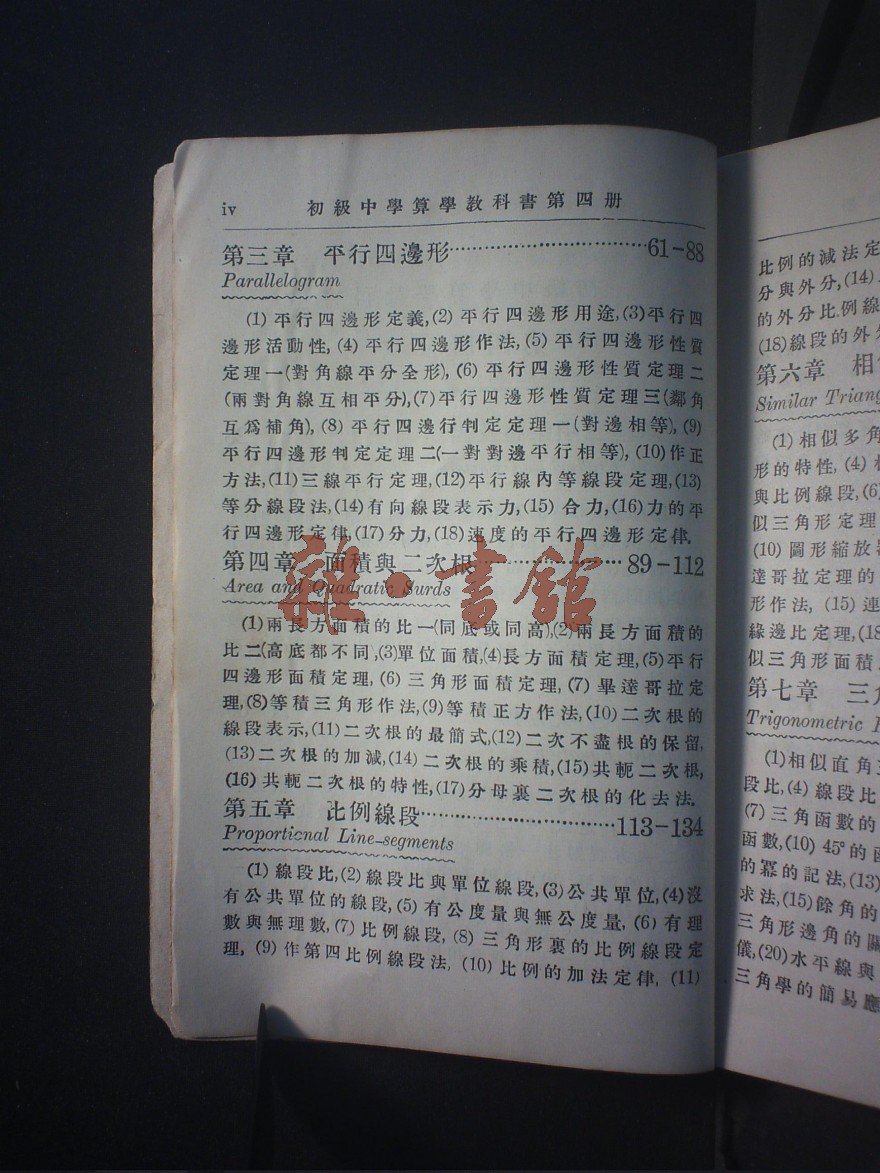 iv 初級中學算學教科書第四册
第三章 平行四邊形……………………61-88
Parallelogram
(1) 平行四邊形定義,(2) 平行四邊形用途,(3)平行四
邊形活動性, (4) 平行四邊形作法, (5) 平行四邊形性質
定理一(對角線平分全形), (6) 平行四邊形性質定理二
(兩對角線互相平分),(7)平行四邊形性質定理三(鄰角
互爲補角), (8) 平行四邊行判定定理一(對邊相等), (9)
平行四邊形判定定理二(一對對邊平行相等), (10)作正
方法,(11)三線平行定理,(12)平行線內等線段定理,(13)
等分線段法,(14)有向線段表示力,(15) 合力,(16)力的平
行四邊形定律,(17)分力,(18)速度的平行四邊形定律.
第四章 面積與二次根……………………89-112
Area and Quadratic Surds
(1)兩長方面積的比一(同底或同高),(2)兩長方面積的
比二(高底都不同,(3)單位面積,(4)長方面積定理,(5)平行
四邊形面積定理, (6) 三角形面積定理, (7) 畢達哥拉定
理,(8)等積三角形作法,(9)等積正方作法,(10)二次根的
線段表示,(11)二次根的最簡式,(12)二次不盡根的保留,
(13)二次根的加減,(14)二次根的乘積,(15)共軛二次根,
(16)共軛二次根的特性,(17)分母裏二次根的化去法.
第五章 比例線段……………………113-134
Proportional Line-segments
(1) 線段比,(2)線段比與單位線段,(3)公共單位,(4)沒
有公共單位的線段,(5) 有公度量與無公度量, (6) 有理
數與無理數,(7)比例線段, (8) 三角形裏的比例線段定
理, (9) 作第四比例線段法, (10) 比例的加法定律, (11)
雜·書館
比例的減法定
分與外分,(14)
的外分比.例線
(18)線段的外
第六章 相
Similar Triang
(1)相似多角
形的特性, (4)
與比例線段,(6)
似三角形定理
(10) 圖形縮放
達哥拉定理的
形作法, (15) 連
緣邊比定理,(18
似三角形面積
第七章 三
Trigonometric
(1)相似直角三
段比,(4) 線段比
(7) 三角函數的
函數,(10) 45°的函
的冪的記法,(13)
求法,(15)餘角的
三角形邊角的關
儀,(20)水平線與
三角學的簡易應